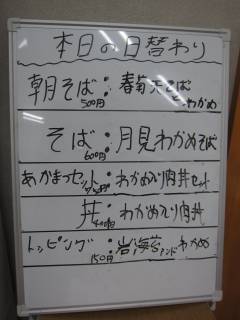 本日の日替わり
朝そば：春菊天そば
500円 わかめ
そば：月見わかめそば
600円
あかまつセット：わかめ入り肉丼セット
丼：わかめ入り肉丼
400円
トッピング：岩海苔アンドわかめ
150円